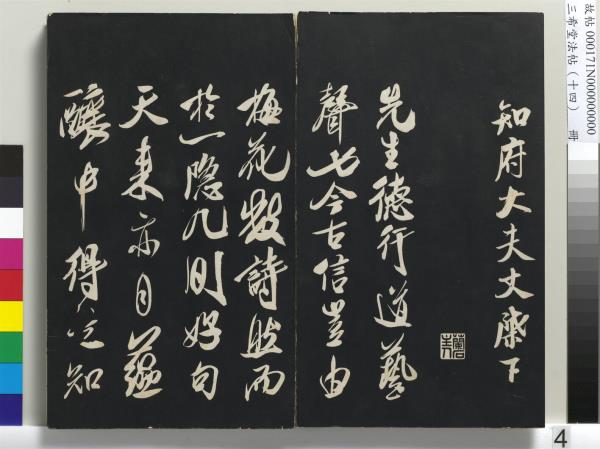 知府大夫丈席下
先生德行道藝
聲七今古信豈由
梅花數詩然而
於一隱几則好句
天來亦自蘊
釀中得之知
故帖 000171N000000000
三希堂法帖（十四）
4